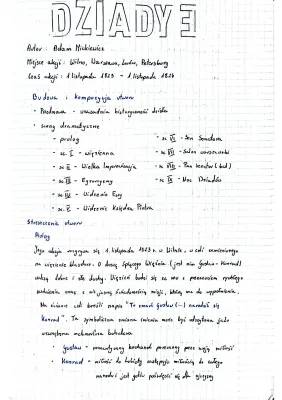 DZIADY 3
Autor: Adam Mickiewicz
Miejsce akcji: Wilno, Warszawa, Lwów, Petersburg
Czas akcji: 1 listopada 1823 - 1 listopada 1824
Budowa i kompozycja utworu
• Przedmowa - uzasadnienie historyczności dzieła
• sceny dramatyczne
- prolog
- sc. I - więzienna
- sc. II - Wielka Improwizacja
- sc. III - Egzorcyzmy
- sc. IV - Widzenie Ewy
- sc. V - Widzenie Księdza Piotra
- sc. VI - Sen Senatora
- sc. VII - Salon warszawski
- sc. VIII - Pan Senator (bal)
- sc. IX - Noc Dziadów
Streszczenie utworu
Prolog
Jego akcja rozgrywa się 1 listopada 1823 r. w Wilnie, w celi zamienionej
na więzienie klasztoru. O duszę śpiącego Więźnia (jest nim Gustaw-Konrad)
walczą dobre i złe duchy. Więzień budzi się ze snu z poczuciem rychłego
uwolnienia oraz z niejasną świadomością misji, którą ma do wypełnienia.
Na ścianie celi kreśli napis "Tu umarł Gustaw (-) narodził się
Konrad". Ta symboliczna zmiana imienia może być odczytana jako
wewnętrzna metamorfoza bohatera.
• Gustaw - romantyczny kochanek pochłonięty przez swoją miłość
• Konrad - miłość do kobiety zastępuje miłością do całego
narodu i jest gotów poświęcić się dla ojczyzny